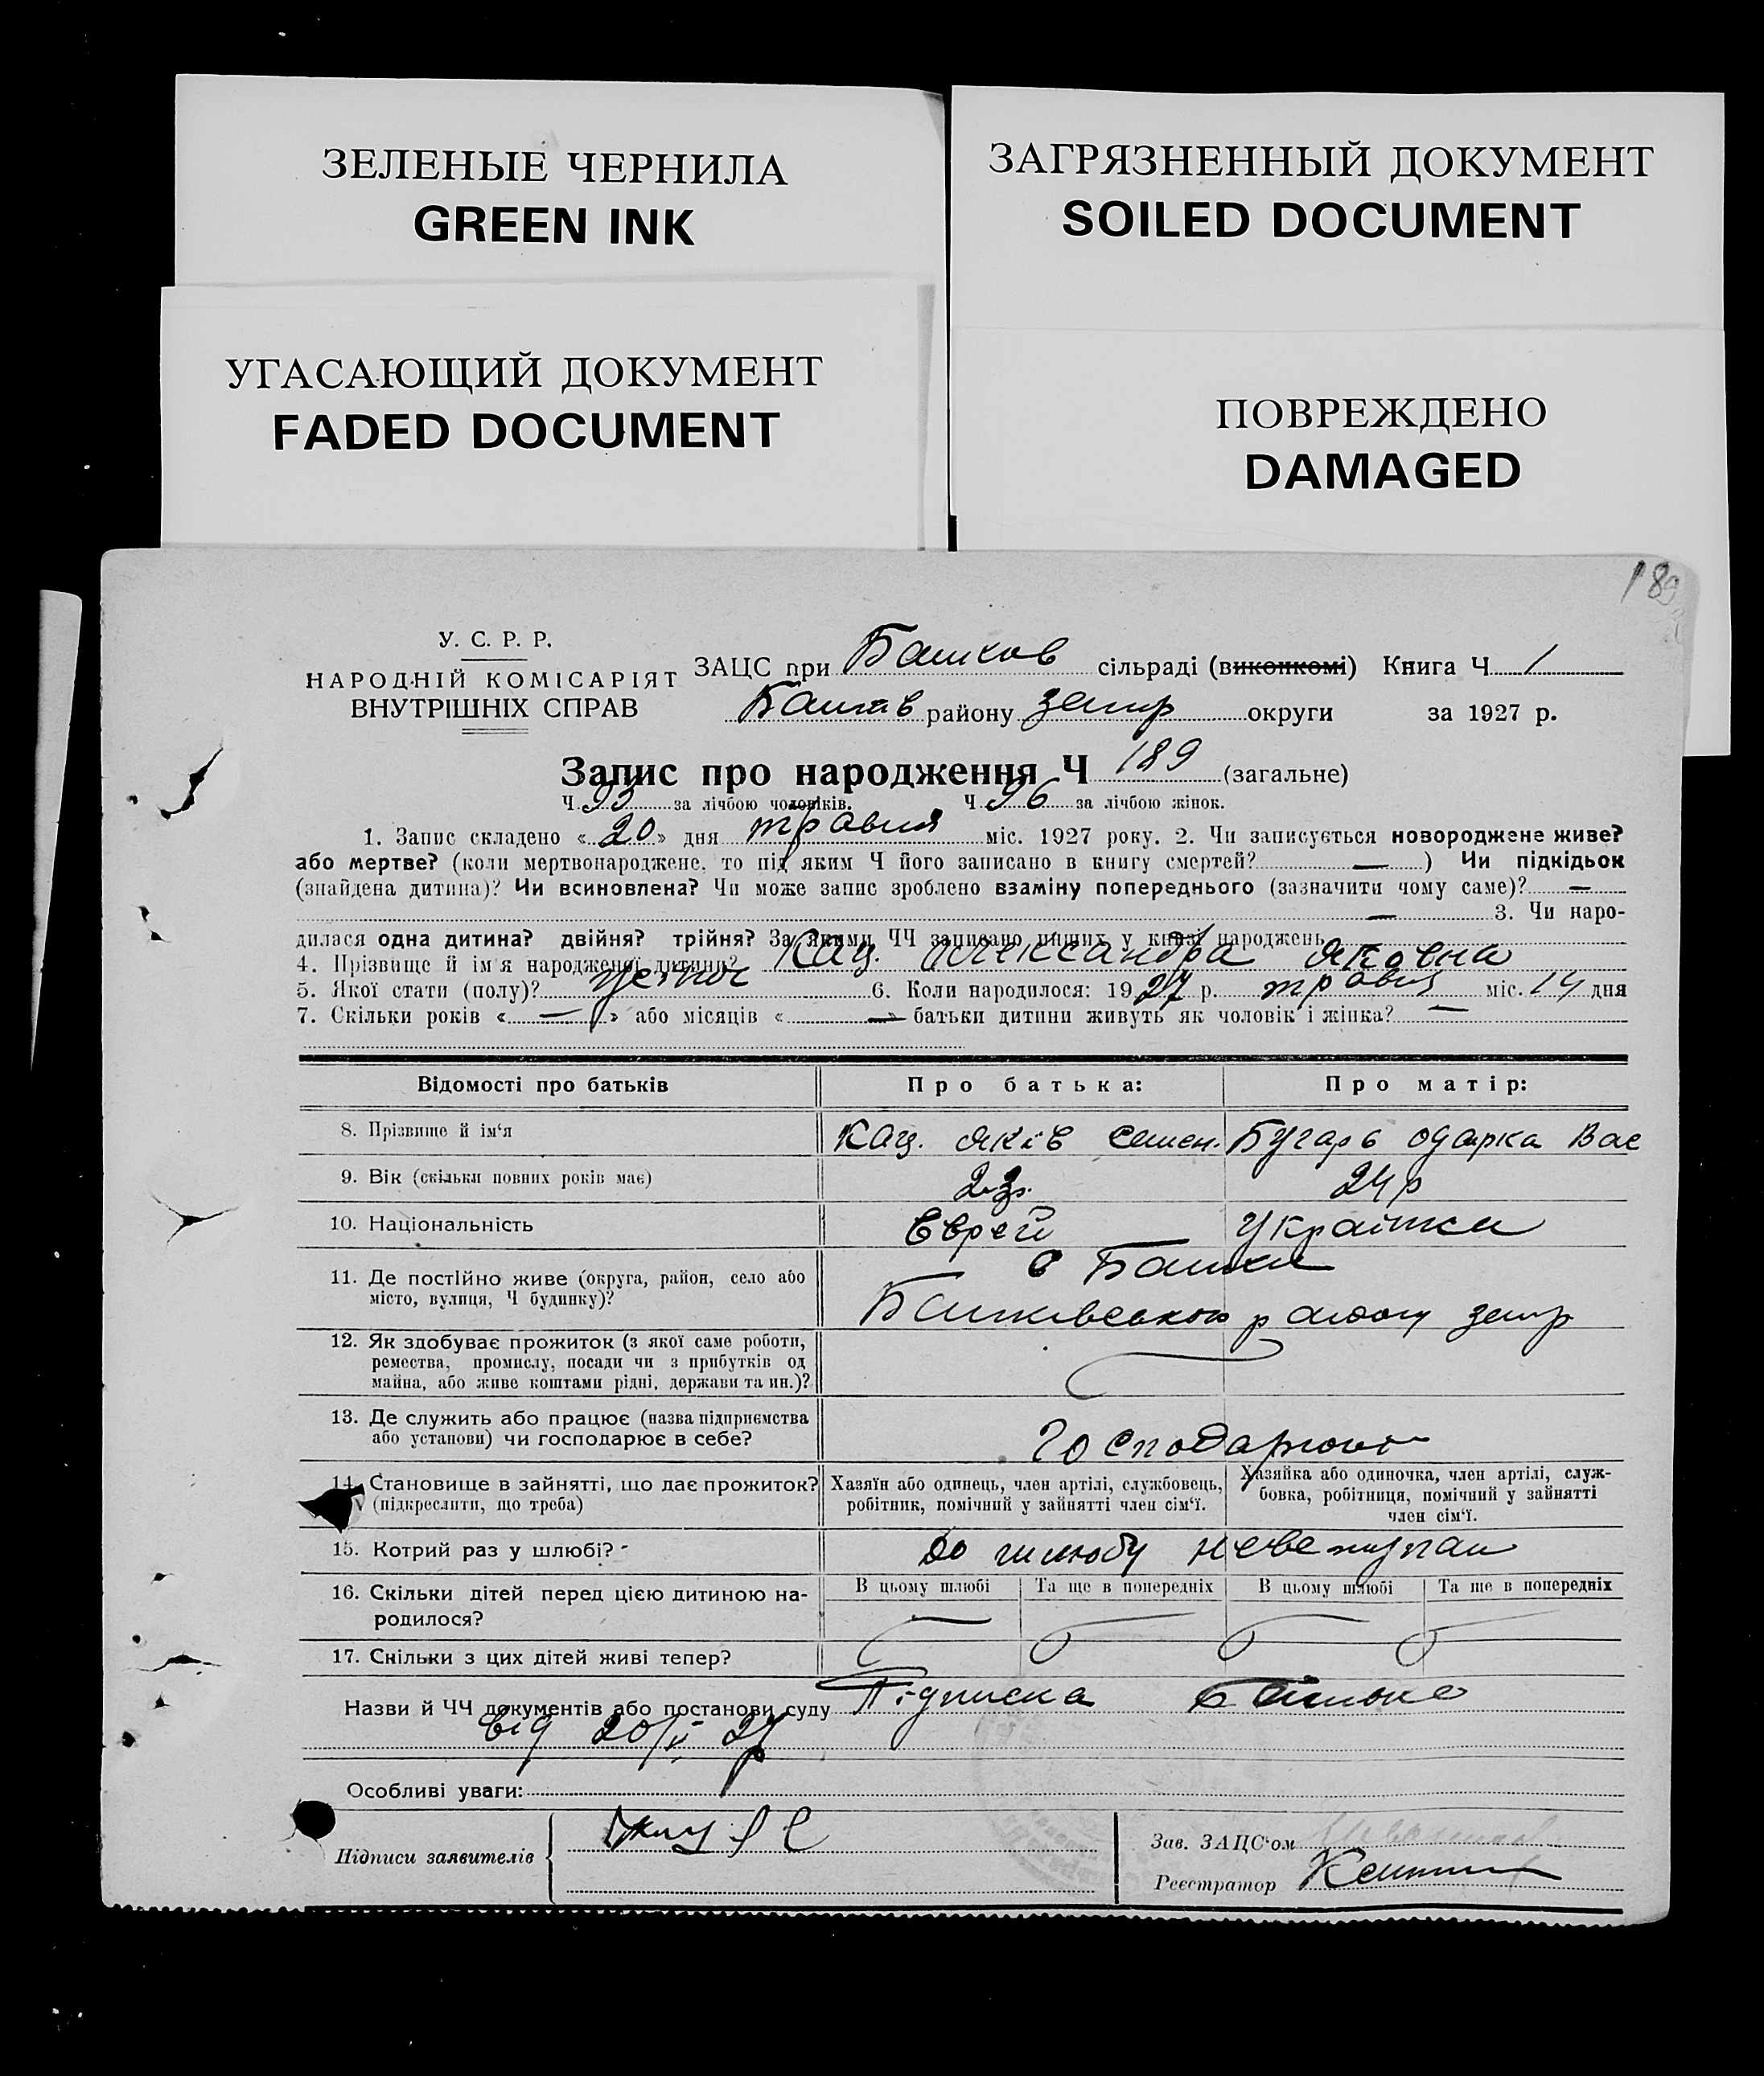 ЗЕЛЕНЫЕ ЧЕРНИЛА
GREEN INK
ЗАГРЯЗНЕННЫЙ ДОКУМЕНТ
SOILED DOCUMENT
УГАСАЮЩИЙ ДОКУМЕНТ
FADED DOCUMENT
ПОВРЕЖДЕНО
DAMAGED
189
У. С. Р. Р.
НАРОДНІЙ КОМІСАРІЯТ
ВНУТРІШНІХ СПРАВ
ЗАЦС при Башков сільраді (виконкомі) Книга Ч. 1
Башків району запр округи за 1927 р.
Запис про народження Ч 189 (загальне)
Ч. 93 за лічбою чоловіків. Ч 96 за лічбою жінок.
1. Запис складено «20» дня травня міс. 1927 року. 2. Чи записується новороджене живе?
або мертве? (коли мертвонароджене, то під яким Ч його записано в книгу смертей? — ) Чи підкідьок
(знайдена дитина)? Чи всиновлена? Чи може запис зроблено взаміну попереднього (зазначити чому саме)? —
— 3. Чи наро-
дилася одна дитина? двійня? трійня? За якими ЧЧ записано инших у книзі народжень
4. Прізвище й ім'я народженої дитини? Кац. Олександра Яковна
5. Якої стати (полу)? жіноч 6. Коли народилося: 1927 р. травня міс. 14 дня
7. Скільки років « — » або місяців « — » батьки дитини живуть як чоловік і жінка? —
Відомості про батьків Про батька: Про матір:
8. Прізвище й ім'я Кац. Яків Семен. Бугарь Одарка Вас
9. Вік (скільки повних років має) 23р. 24р
10. Національність Єврей Українка
11. Де постійно живе (округа, район, село або
місто, вулиця, Ч будинку)?
с Башки
Башківського району запр
12. Як здобуває прожиток (з якої саме роботи,
ремества, промислу, посади чи з прибутків од
майна, або живе коштами рідні, держави та ин.)?
13. Де служить або працює (назва підприємства
або установи) чи господарює в себе?
Господарюют
14. Становище в зайнятті, що дає прожиток?
(підкреслити, що треба)
Хазяїн або одинець, член артілі, службовець,
робітник, помічний у зайнятті член сім'ї.
Хазяйка або одиночка, член артілі, служ-
бовка, робітниця, помічний у зайнятті
член сім'ї.
15. Котрий раз у шлюбі? До шлюбу невступали
16. Скільки дітей перед цією дитиною на-
родилося?
В цьому шлюбі Та ще в попередніх В цьому шлюбі Та ще в попередніх
17. Скільки з цих дітей живі тепер?
Назви й ЧЧ документів або постанови суду Підписка батька
від 20/V 27р
Особливі уваги:
Підписи заявителів
Зав. ЗАЦС'ом
Реєстратор